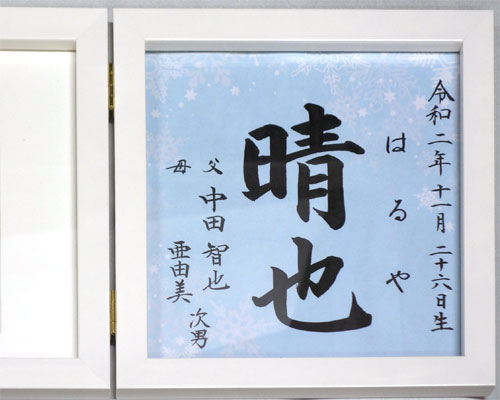 令和二年十一月二十六日生
はるや
晴也
父 中田智也
母 亜由美
次男